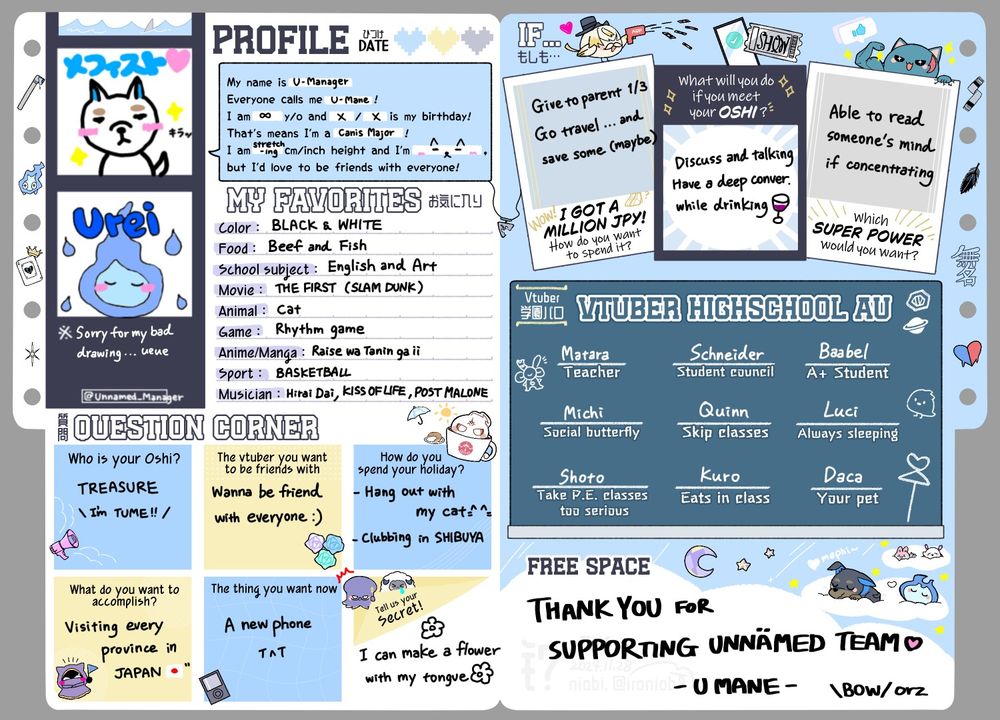 メフィスト
キラッ
Urei
※ Sorry for my bad
drawing... ueue
@Unnamed_Manager
PROFILE
ひづけ
DATE
My name is U-Manager
Everyone calls me U-Mane !
I am ∞ y/o and X / X is my birthday!
That's means I'm a Canis Major !
I am stretch-ing cm/inch height and I'm
but I'd love to be friends with everyone!
MY FAVORITES お気に入り
Color : BLACK & WHITE
Food : Beef and Fish
School subject : English and Art
Movie : THE FIRST (SLAM DUNK)
Animal : Cat
Game : Rhythm game
Anime/Manga : Raise wa Tanin ga ii
Sport : BASKETBALL
Musician : Hirai Dai, KISS OF LIFE, POST MALONE
質問
QUESTION CORNER
Who is your Oshi?
TREASURE
\ I'm TUME!! /
The vtuber you want
to be friends with
Wanna be friend
with everyone :)
How do you
spend your holiday?
- Hang out with
my cat=^^=
- Clubbing in SHIBUYA
What do you want to
accomplish?
Visiting every
province in
JAPAN 🇯🇵"
The thing you want now
A new phone
T^T
Tell us your
secret!
I can make a flower
with my tongue
IF...
もしも...
SHOW
Give to parent 1/3
Go travel ... and
save some (maybe)
WOW!
I GOT A
MILLION JPY!
How do you want
to spend it?
What will you do
if you meet
your OSHI ?
Discuss and talking
Have a deep conver.
while drinking🍷
Able to read
someone's mind
if concentrating
Which
SUPER POWER
would you want?
無名
Vtuber
学園パロ
VTUBER HIGHSCHOOL AU
Matara
Teacher
Schneider
Student council
Baabel
A+ Student
Michi
Social butterfly
Quinn
Skip classes
Luci
Always sleeping
Shoto
Take P.E. classes
too serious
Kuro
Eats in class
Daca
Your pet
FREE SPACE
♡mophi~
THANK YOU FOR
SUPPORTING UNNÄMED TEAM♡
2024.11.28
- U MANE -
\BOW/ orz